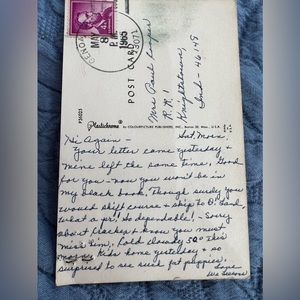 MAY
8
P.M.
1965
P26023
POST CARD
Mrs Paul
R.R. 1
Knightstown,
Ind - 46148
Plastichrome ®
by COLOURPICTURE PUBLISHERS, INC., Boston 30, Mass., U.S.A.
Hi Again -
Your letter came yesterday &
mine left the same time, Good
for you - now you won't be in
my black book. Though surely you
would skip to
what a pr! So dependable! - Sorry
about Cracker & know you must
miss him, Cold cloudy 50° this
Kids home yesterday & so
surprised to see such fat puppies.